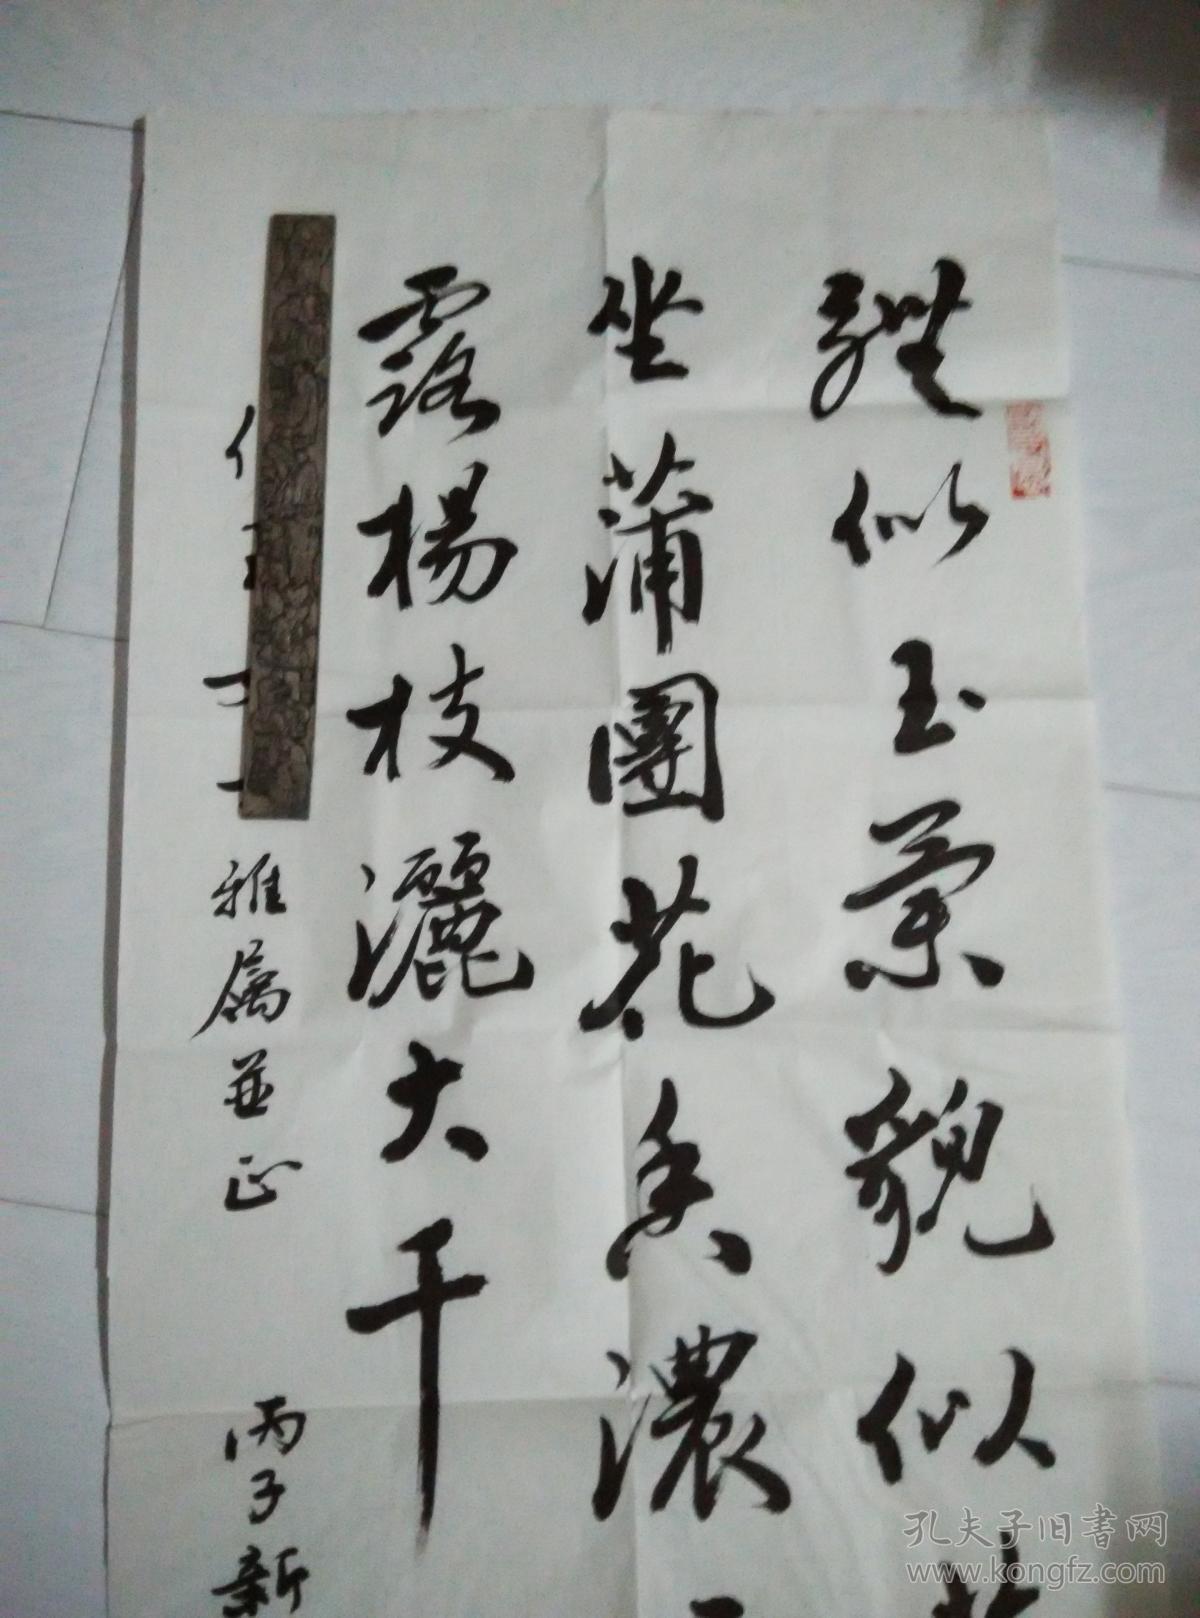 體似玉蘭貌似
坐蒲團花香濃
露楊枝灑大千
雅屬並正 丙子新
孔夫子旧書网
www.kongfz.com